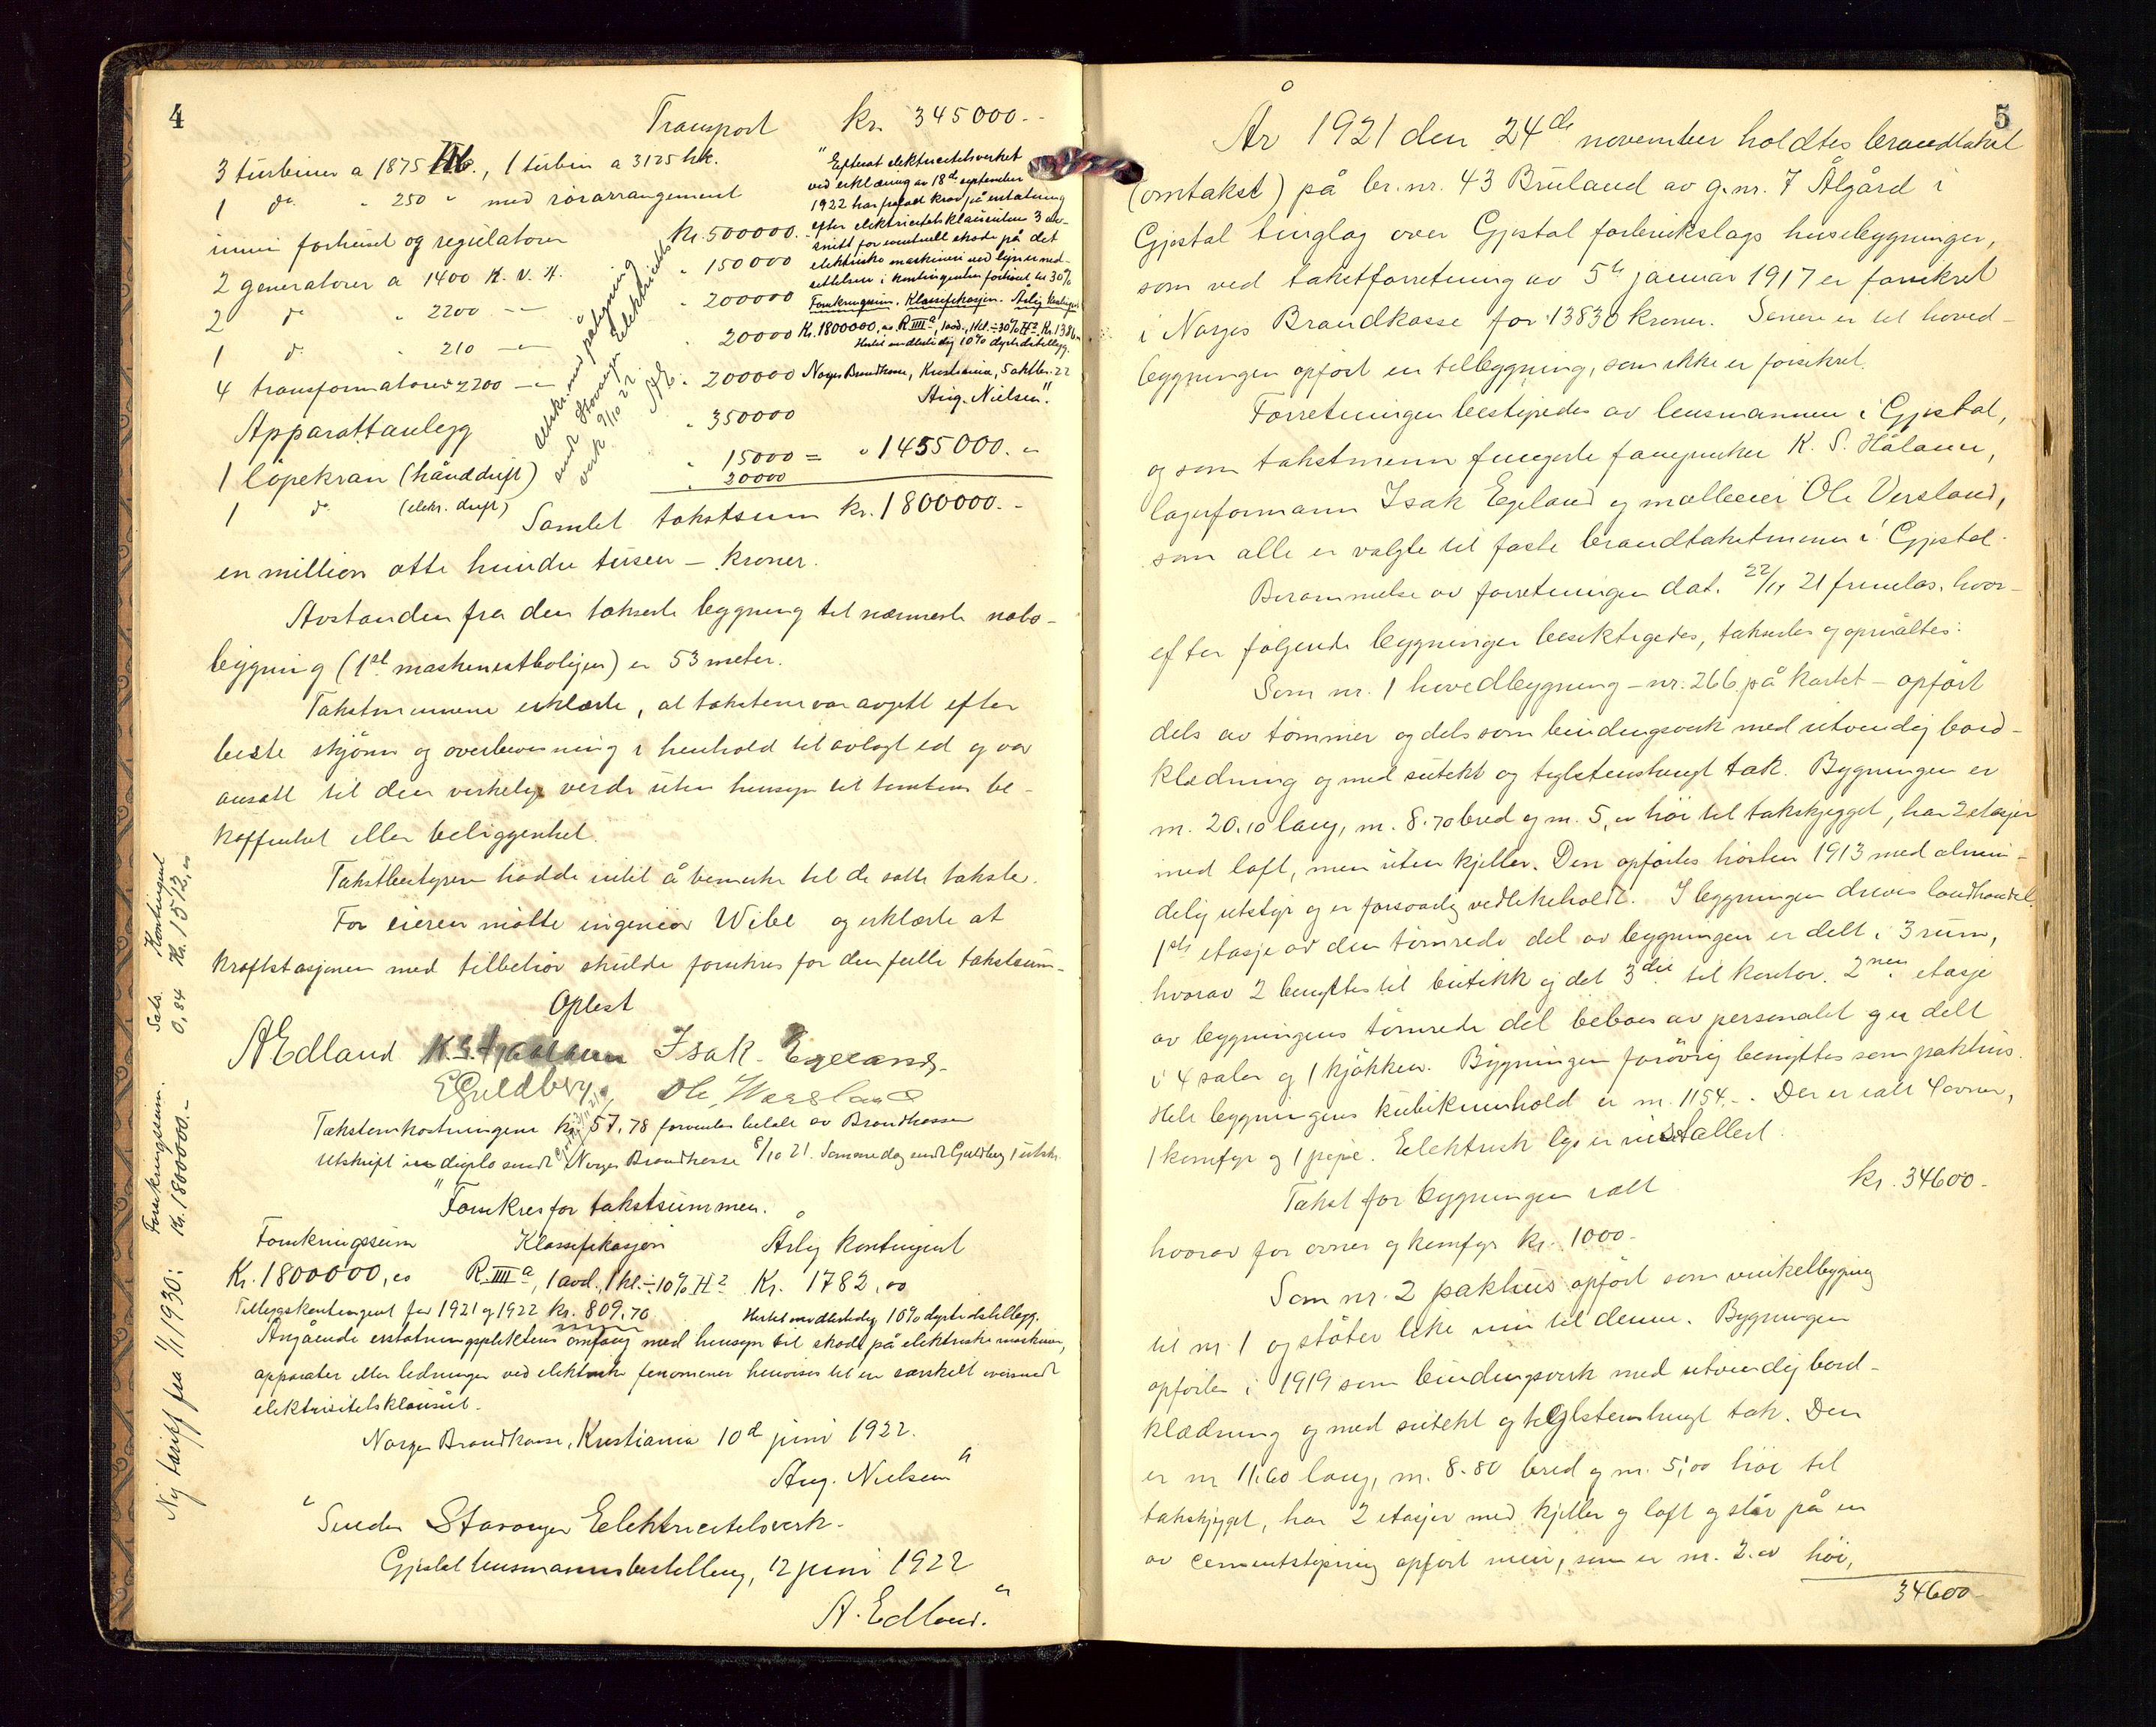 4
Transport kr. 345000.-
3 turbiner a 1875 Hk., 1 turbin a 3125 hk.
1 do. " 250 " med rörarrangement
inni forhuset og regulatorer kr. 500000.-
2 generatorer a 1400 K.V.A. " 150000
2 do " 2200 -"- " 200000
1 do " 210 -"- " 20000
4 transformatorer 2200 -"- " 200000
Apparattanlegg " 350000
1 löpekran (hånddrift) " 15000 = " 1455000.-
1 do (elekr. drift) " 20000
Samlet takstsum kr. 1800000.-
Utskr. med påtegning
sendt Stavanger Elektricitets
verk 9/10 22. AE.
"Efterat elektricitetsverket
ved erklæring av 18de september
1922 har frafalt krav på erstatning
efter elektricitetsklausulens 3 av-
snitt for eventuell skade på det
elektriske maskineri ved lyn er ned-
settelsen i kontingenten forhöiet til 30%
Forsikringssum. Klassifikasjon. Årlig kontingent
Kr. 1800000,00 R IIII a, 1 avd., 1 kl. ÷ 30% H2 Kr. 1386,00
Hertil midlertidig 10% dyrtidstillegg.
Norges Brandkasse, Kristiania, 5 oktbr. 22
Aug. Nielsen".
en million otte hundre tusen - kroner.
Avstanden fra den takserte bygning til nærmeste nabo-
bygning (1ste maskinistboligen) er 53 meter.
Takstmennene erklærte, at taksten var avgitt efter
beste skjönn og overbevisning i henhold til avlagt ed og var
ansatt til den virkelige verdi uten hensyn til tomtens be-
skaffenhet eller beliggenhet.
Takstbestyreren hadde intet å bemerke til de satte takster.
For eieren mötte ingeniör Wibe og erklærte at
kraftstasjonen med tilbehör skulde forsikres for den fulle takstsum.
Oplest
A Edland K. S. Haaland Isak Egeland.
E Guldberg Ole Versland
Takstomkostningene kr. 57,78 forventes betalt av Brandkassen
Utskrift in duplo sendt Norges Brandkasse 8/10 21. Samme dag sendt Guldberg 1 utskr.
"Forsikres for takstsummen.
Forsikringssum Klassifikasjon Årlig kontingent
Kr. 1800000,00 R. IIII a, 1 avd., 1 kl. ÷ 10% H2 Kr. 1782,00
Tilleggskontingent for 1921 og 1922 kr. 809,70 Hertil midlertidig 10% dyrtidstillegg.
Angående erstatningspliktens omfang med hensyn til skade på elektriske maskiner,
apparater eller ledninger ved elektriske fenomener henvises til en særskilt oversendt
elektrisitetsklausul.
Norges Brandkasse, Kristiania 10de juni 1922.
Aug. Nielsen"
"Sendes Stavanger Elektricitetsverk.
Gjestal lensmannsbestilling, 12 juni 1922
A. Edland."
Ny tariff fra 1/1 1930: Forsikringssum. Sats. Kontingent
Kr. 1800000.- 0,84 Kr. 1512,00
5
År 1921 den 24de november holdtes brandtakst
(omtakst) på br.nr. 43 Bruland av g.nr. 7 Ålgård i
Gjestal tinglag over Gjestal forbrukslags husebygninger,
som ved takstforretning av 5te januar 1917 er forsikret
i Norges Brandkasse for 13830 kroner. Senere er til hoved-
bygningen opfört en tilbygning, som ikke er forsikret.
Forretningen bestyredes av lensmannen i Gjestal,
og som takstmenn fungerte K. S. Håland,
lagerformann Isak Egeland og mölleeier Ole Versland,
som alle er valgte til faste brandtakstmenn i Gjestal.
Berammelse av forretningen dat. 22/11 21 fremlas, hvor-
efter fölgende bygninger besiktigedes, taksertes og opmåltes:
Som nr. 1 hovedbygning - nr. 266 på kartet - opfört
dels av tömmer og dels som bindingsverk med utvendig bord-
klædning og med sutekt og teglstenshengt tak. Bygningen er
m. 20.10 lang, m. 8.70 bred og m. 5,00 höi til takskjegget, har 2 etasjer
med loft, men uten kjeller. Den opförtes hösten 1913 med almin-
delig utstyr og er forsvarlig vedlikeholdt. I bygningen drives landhandel.
1ste etasje av den tömrede del av bygningen er delt i 3 rum,
hvorav 2 benyttes til butikk og det 3die til kontor. 2nen etasje
av bygningens tömrede del beboes av personalet og er delt
i 4 saler og 1 kjökken. Bygningen forövrig benyttes som pakhus.
Hele bygningens kubikkinnhold er m. 1154.-. Der er ialt 4 ovner,
1 komfyr og 1 pipe. Elektrisk lys er installert.
Takst for bygningen ialt kr. 34600.-
hvorav for ovner og komfyr kr. 1000.-
Som nr. 2 pakhus opfört som vinkelbygning
til nr. 1 og stöter like inn til denne. Bygningen
opförtes i 1919 som bindingsverk med utvendig bord-
klædning og med sutekt og teglstenshengt tak. Den
er m 11,60 lang, m. 8.80 bred og m. 5,00 höi til
takskjegget, har 2 etasjer med kjeller og loft og står på en
av cementstöpning opfört mur, som er m. 2.00 höi,
34600.-